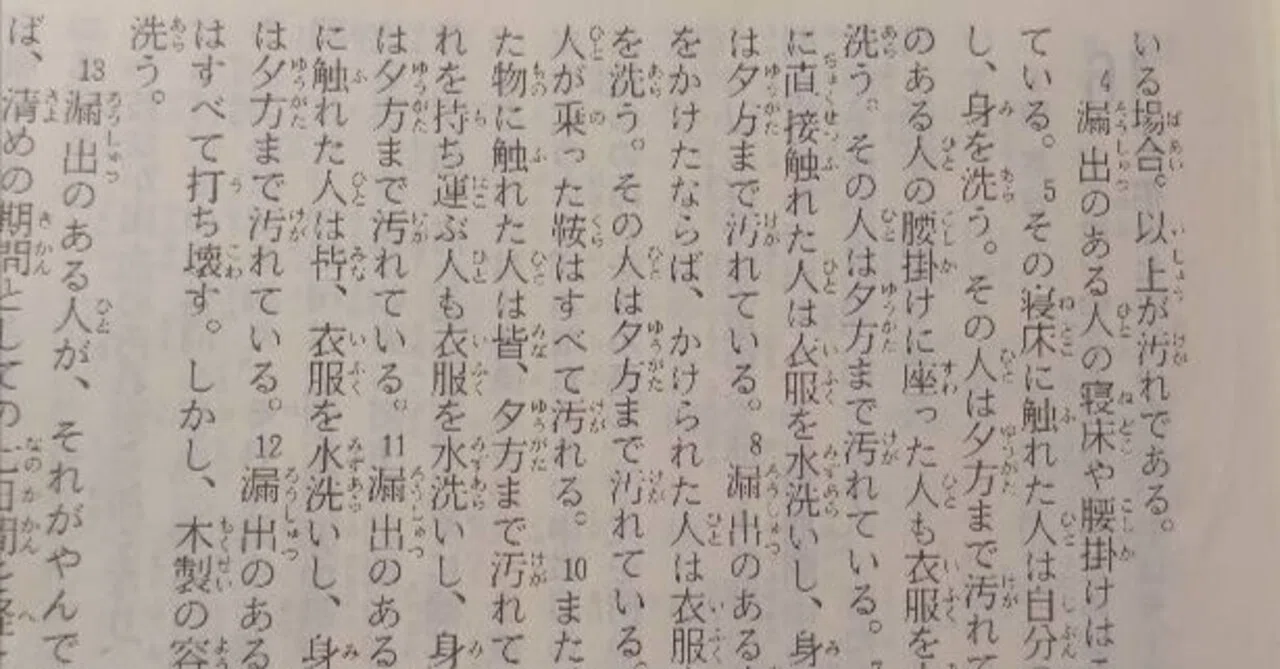 いる場合。以上が汚れである。
4 漏出のある人の寝床や腰掛けは
ている。 5 その寝床に触れた人は自分
し、身を洗う。その人は夕方まで汚れて
のある人の腰掛けに座った人も衣服を
洗う。その人は夕方まで汚れている。
に直接触れた人は衣服を水洗いし、身
は夕方まで汚れている。 8 漏出のある
をかけたならば、かけられた人は衣服
を洗う。その人は夕方まで汚れている。
人が乗った鞍はすべて汚れる。 10 また
た物に触れた人は皆、夕方まで汚れて
れを持ち運ぶ人も衣服を水洗いし、身
は夕方まで汚れている。 11 漏出のある
に触れた人は皆、衣服を水洗いし、身
は夕方まで汚れている。 12 漏出のある
はすべて打ち壊す。しかし、木製の容
洗う。
13 漏出のある人が、それがやんで
ば、清めの期間としての七日間を経